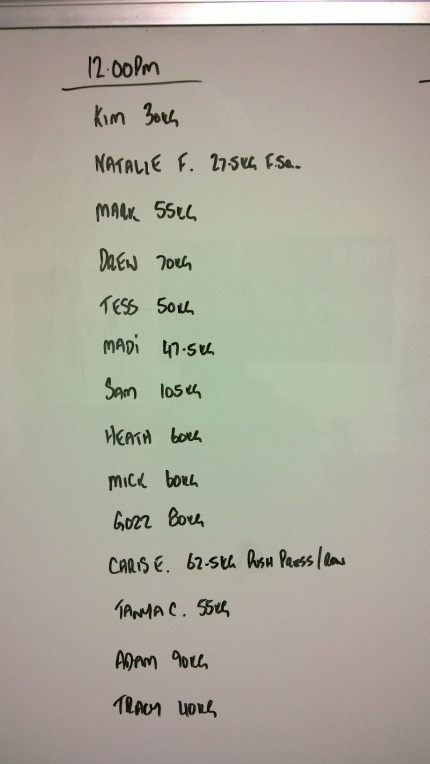 12.00PM
KIM 30KG
NATALIE F. 27.5KG F.SQ.
MARK 55KG
DREW 70KG
TESS 50KG
MADi 47.5KG
SAM 105KG
HEATH 60KG
MICK 60KG
GOZZ 80KG
CHRIS E. 62.5KG PUSH PRESS/ROW
TANYA C. 55KG
ADAM 90KG
TRACY 40KG